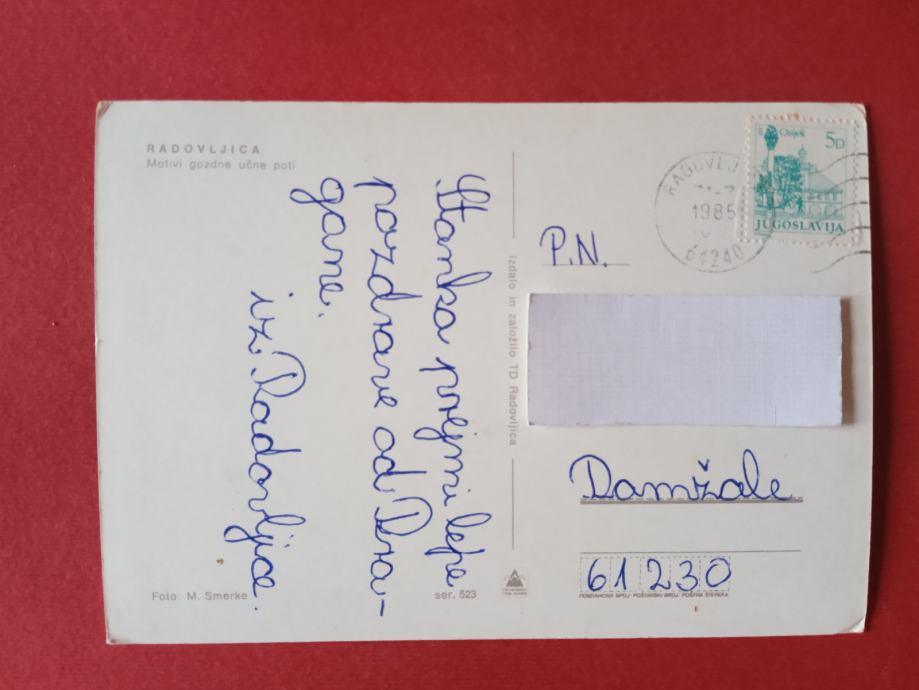 RADOVLJICA
Motivi gozdne učne poti
Stanka prejmi lepe
pozdrave od Dra-
gane.
iz Radovljice.
Foto: M. Smerke
ser. 523
izdalo in založilo TD Radovljica
Osijek
5D
JUGOSLAVIJA
1985
64240
P.N.
Domžale
61230
POŠTANSKI BROJ POŠTNA ŠTEVILKA